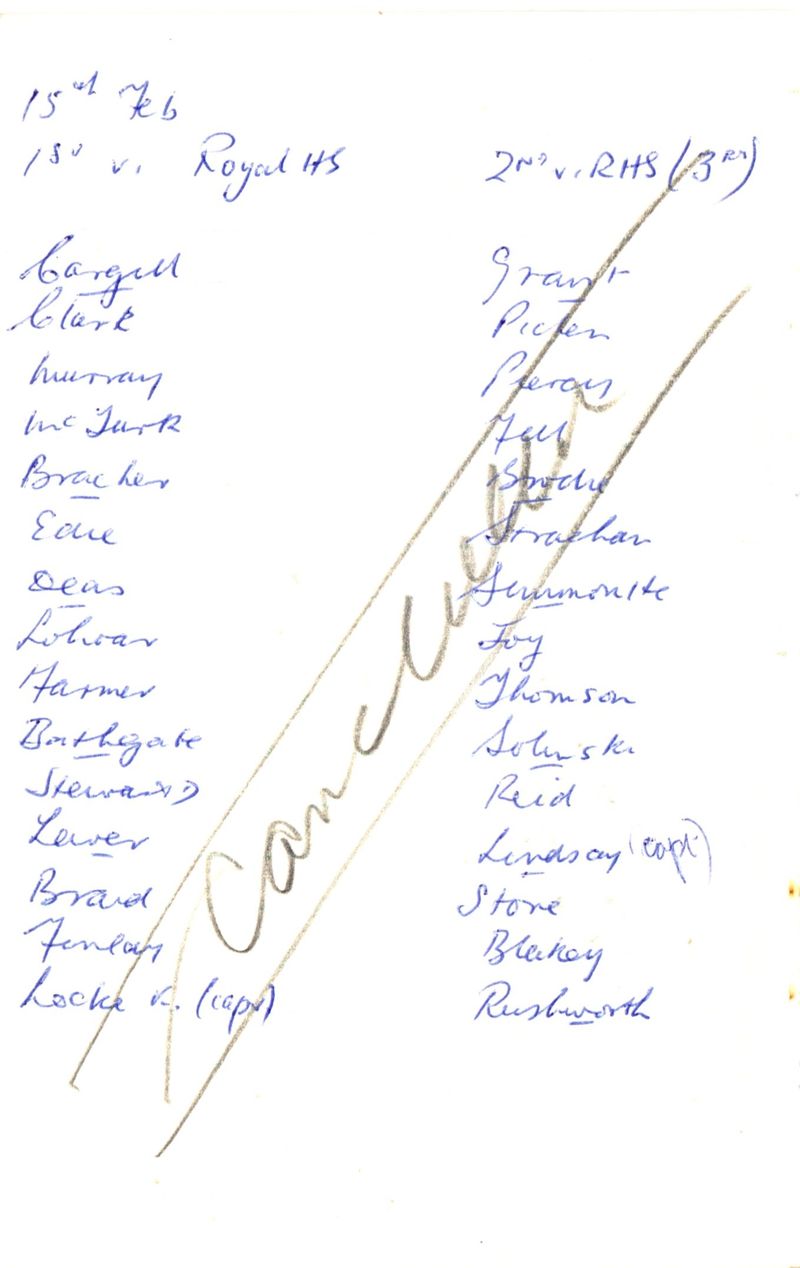 15th Feb
1st v. Royal HS
Cargill
Clark
Murray
McTurk
Bracher
Edie
Deas
Lothian
Farmer
Bathgate
Steward
Lawer
Braid
Finlay
Locke K. (capt)
2nd v. RHS (3rd)
Grant
Picken
Piercy
Fell
Brodie
Strachan
Simmonite
Joy
Thomson
Solinski
Reid
Lindsay (capt)
Stone
Blakey
Rushworth
Cancelled